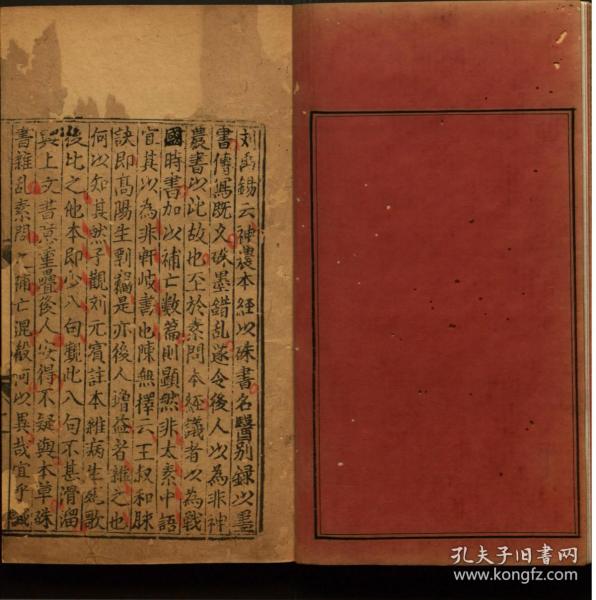 刘禹錫云神農本經以硃書名醫别録以墨
書傳寫既久硃墨錯乱遂令後人以為非神
農書以此故也至於素問本經議者以為戰
國時書加以補亡數篇則顕然非太素中語
宜其以為非軒岐書也陳無擇云王叔和脉
訣即髙陽生剽竊是亦後人增益者雜之也
何以知其然予觀刘元賓註本雜病生死歌
後比之他本即少八句觀此八句不甚滑溜
與上文書意重疊後人安得不疑與本草硃
書雜乱素問之補亡混殽何以異哉宜乎
孔夫子旧書网
www.kongfz.com